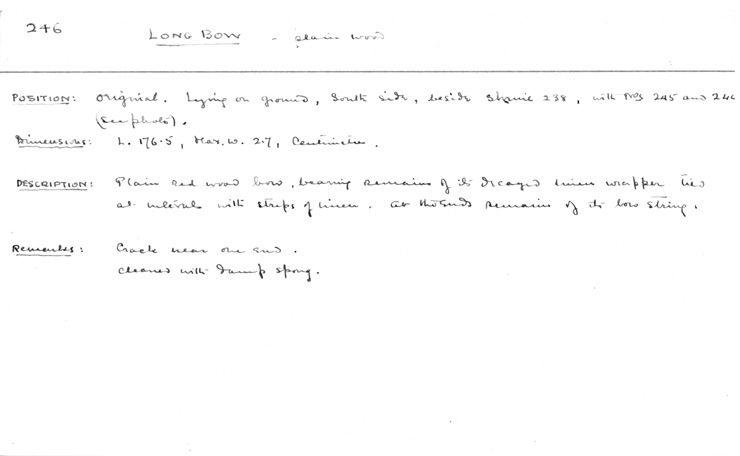 246
LONG BOW - plain wood
POSITION: Original. Lying on ground, South side, beside Shrine 238, with Nos 245 and
(see photo).
Dimensions: L. 176.5, Max. W. 2.7, Centimetres.
DESCRIPTION: Plain red wood bow, bearing remains of its decayed linen wrapper tied
at intervals with strips of linen. At the ends remains of its bow string.
Remarks: Crack near one end.
cleaned with damp spong.